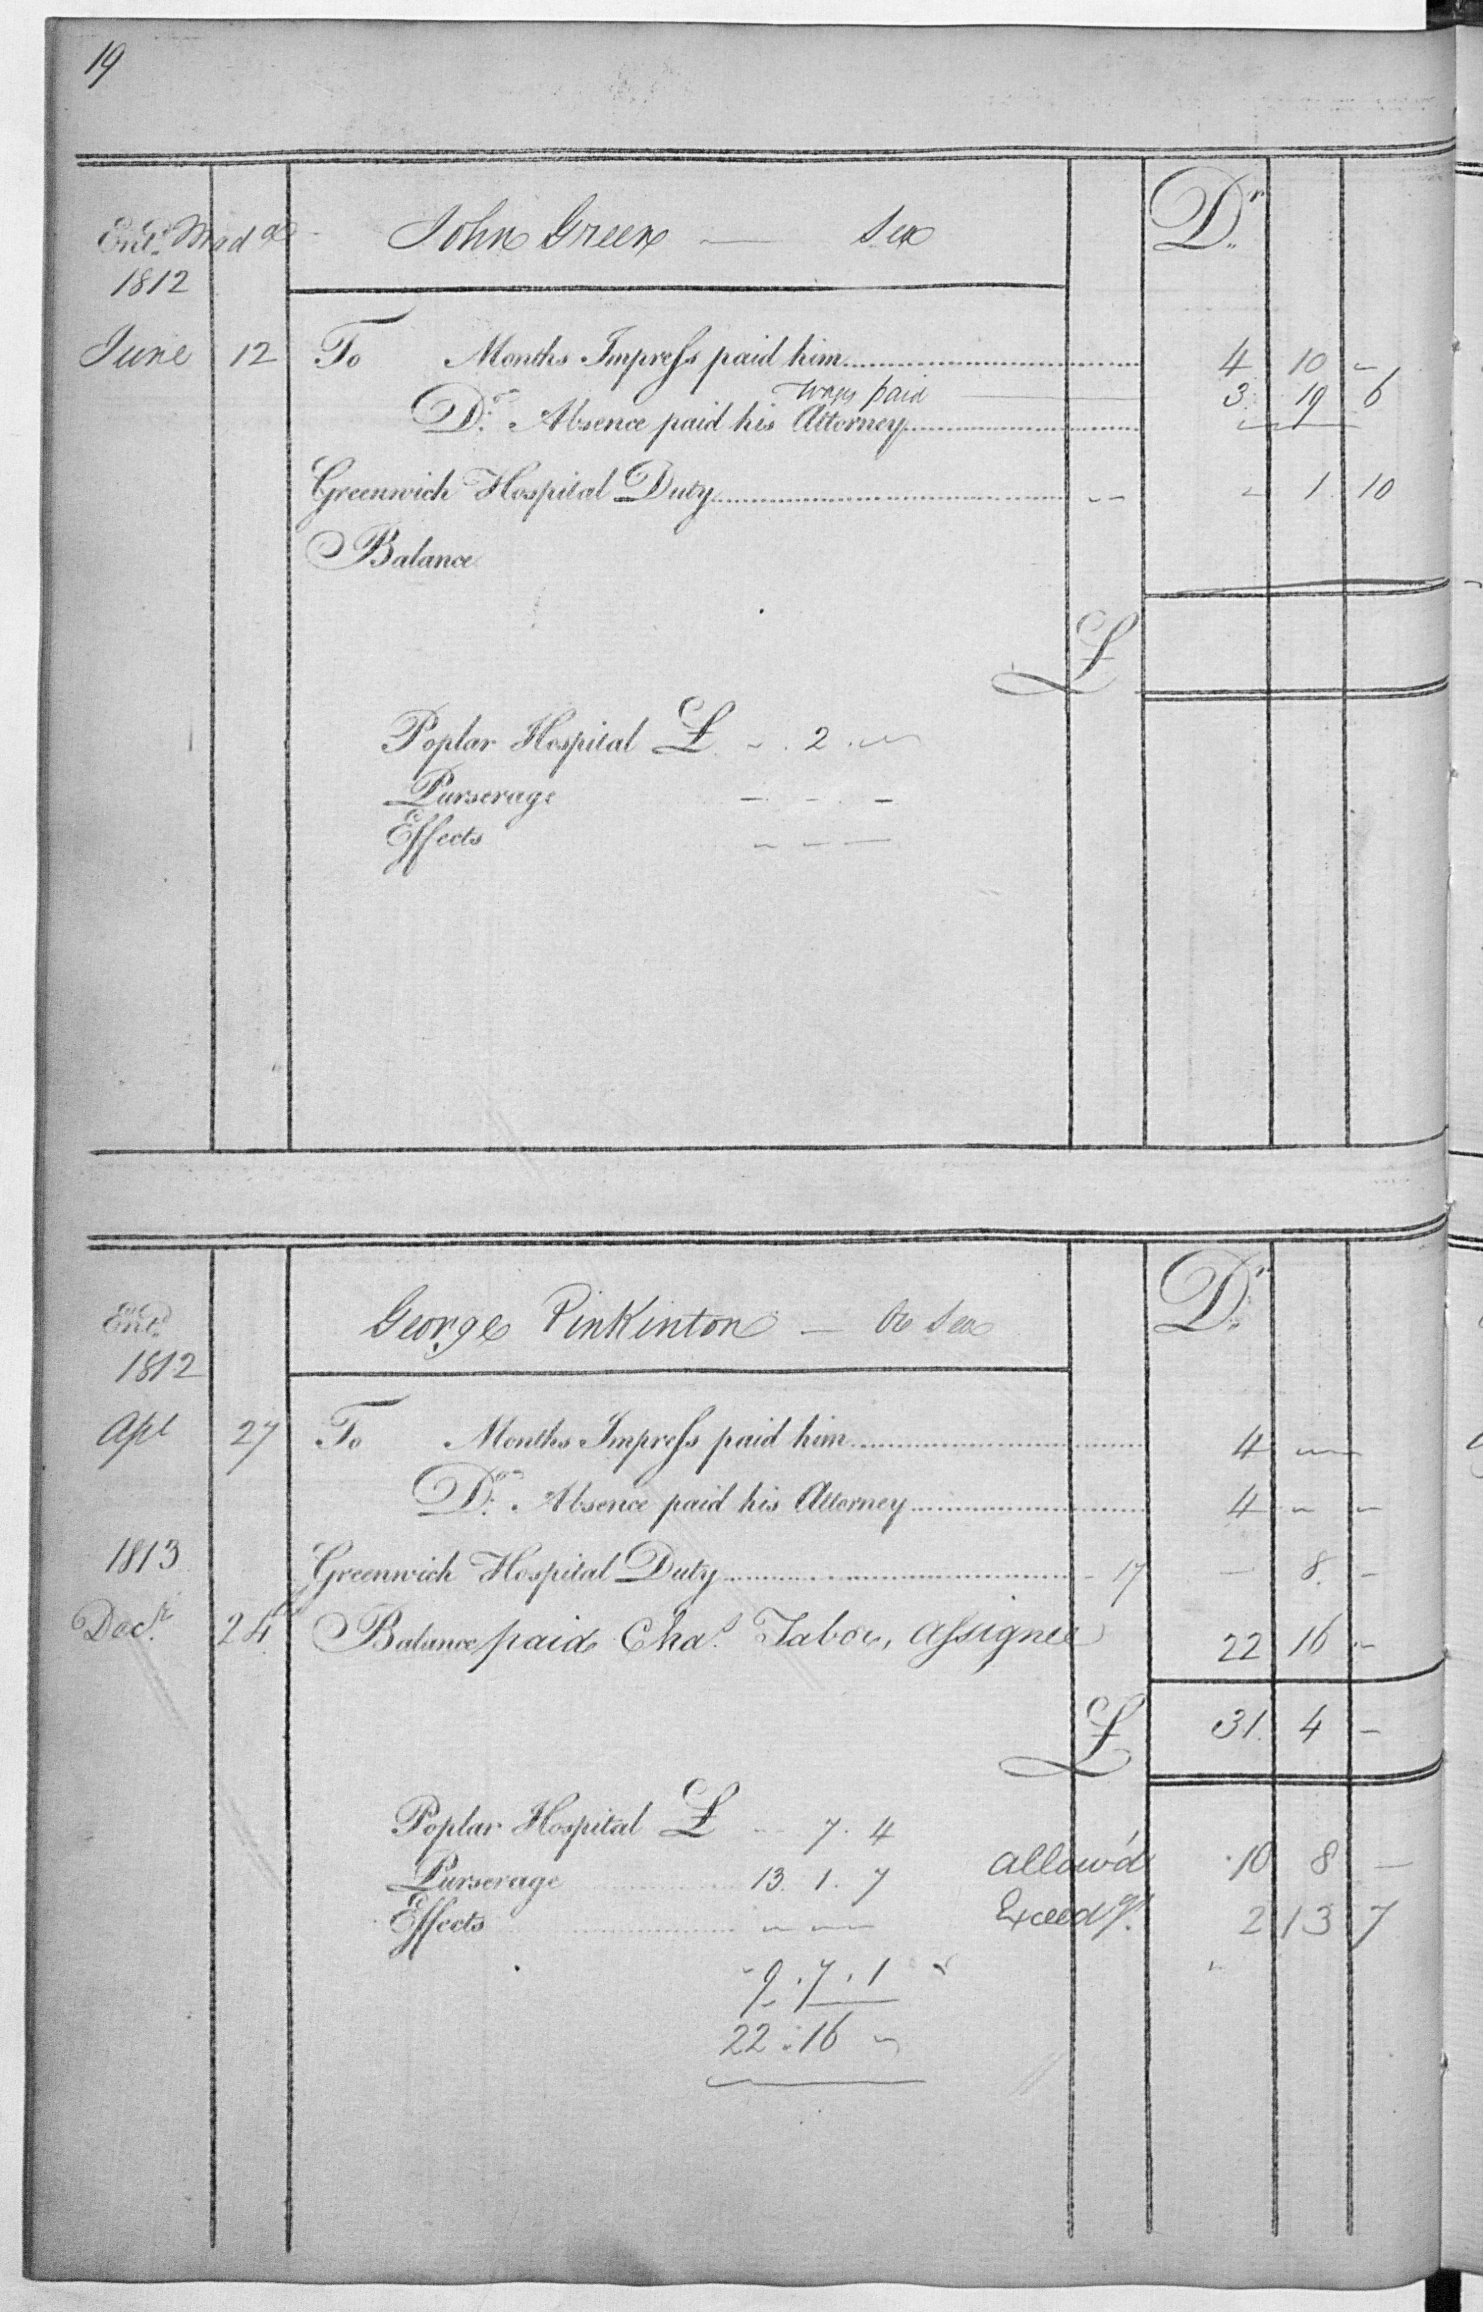 19
Ent.d Mad.as John Green — Sea Dr.
1812
June 12 To Months Impress paid him 4 10 -
Wages paid 3 19 6
Do. Absence paid his Attorney
Greenwich Hospital Duty - - - 1 10
Balance
£
Poplar Hospital £ - . 2 . -
Purserage - - -
Effects - - -
Ent.d George Pinkinton — Do Sea Dr.
1812
Apl 27 To Months Impress paid him 4 - -
Do. Absence paid his Attorney 4 - -
1813 Greenwich Hospital Duty - 17 - 8 -
Decr. 24 Balance paid Chas. Tabor, Assignee 22 16 -
£ 31 4 -
Poplar Hospital £ - 7 . 4
Purserage 13 . 1 . 7 allow'd 10 8 -
Effects - - - Exceedg. 2 13 7
9 . 7 . 1
22 . 16 -